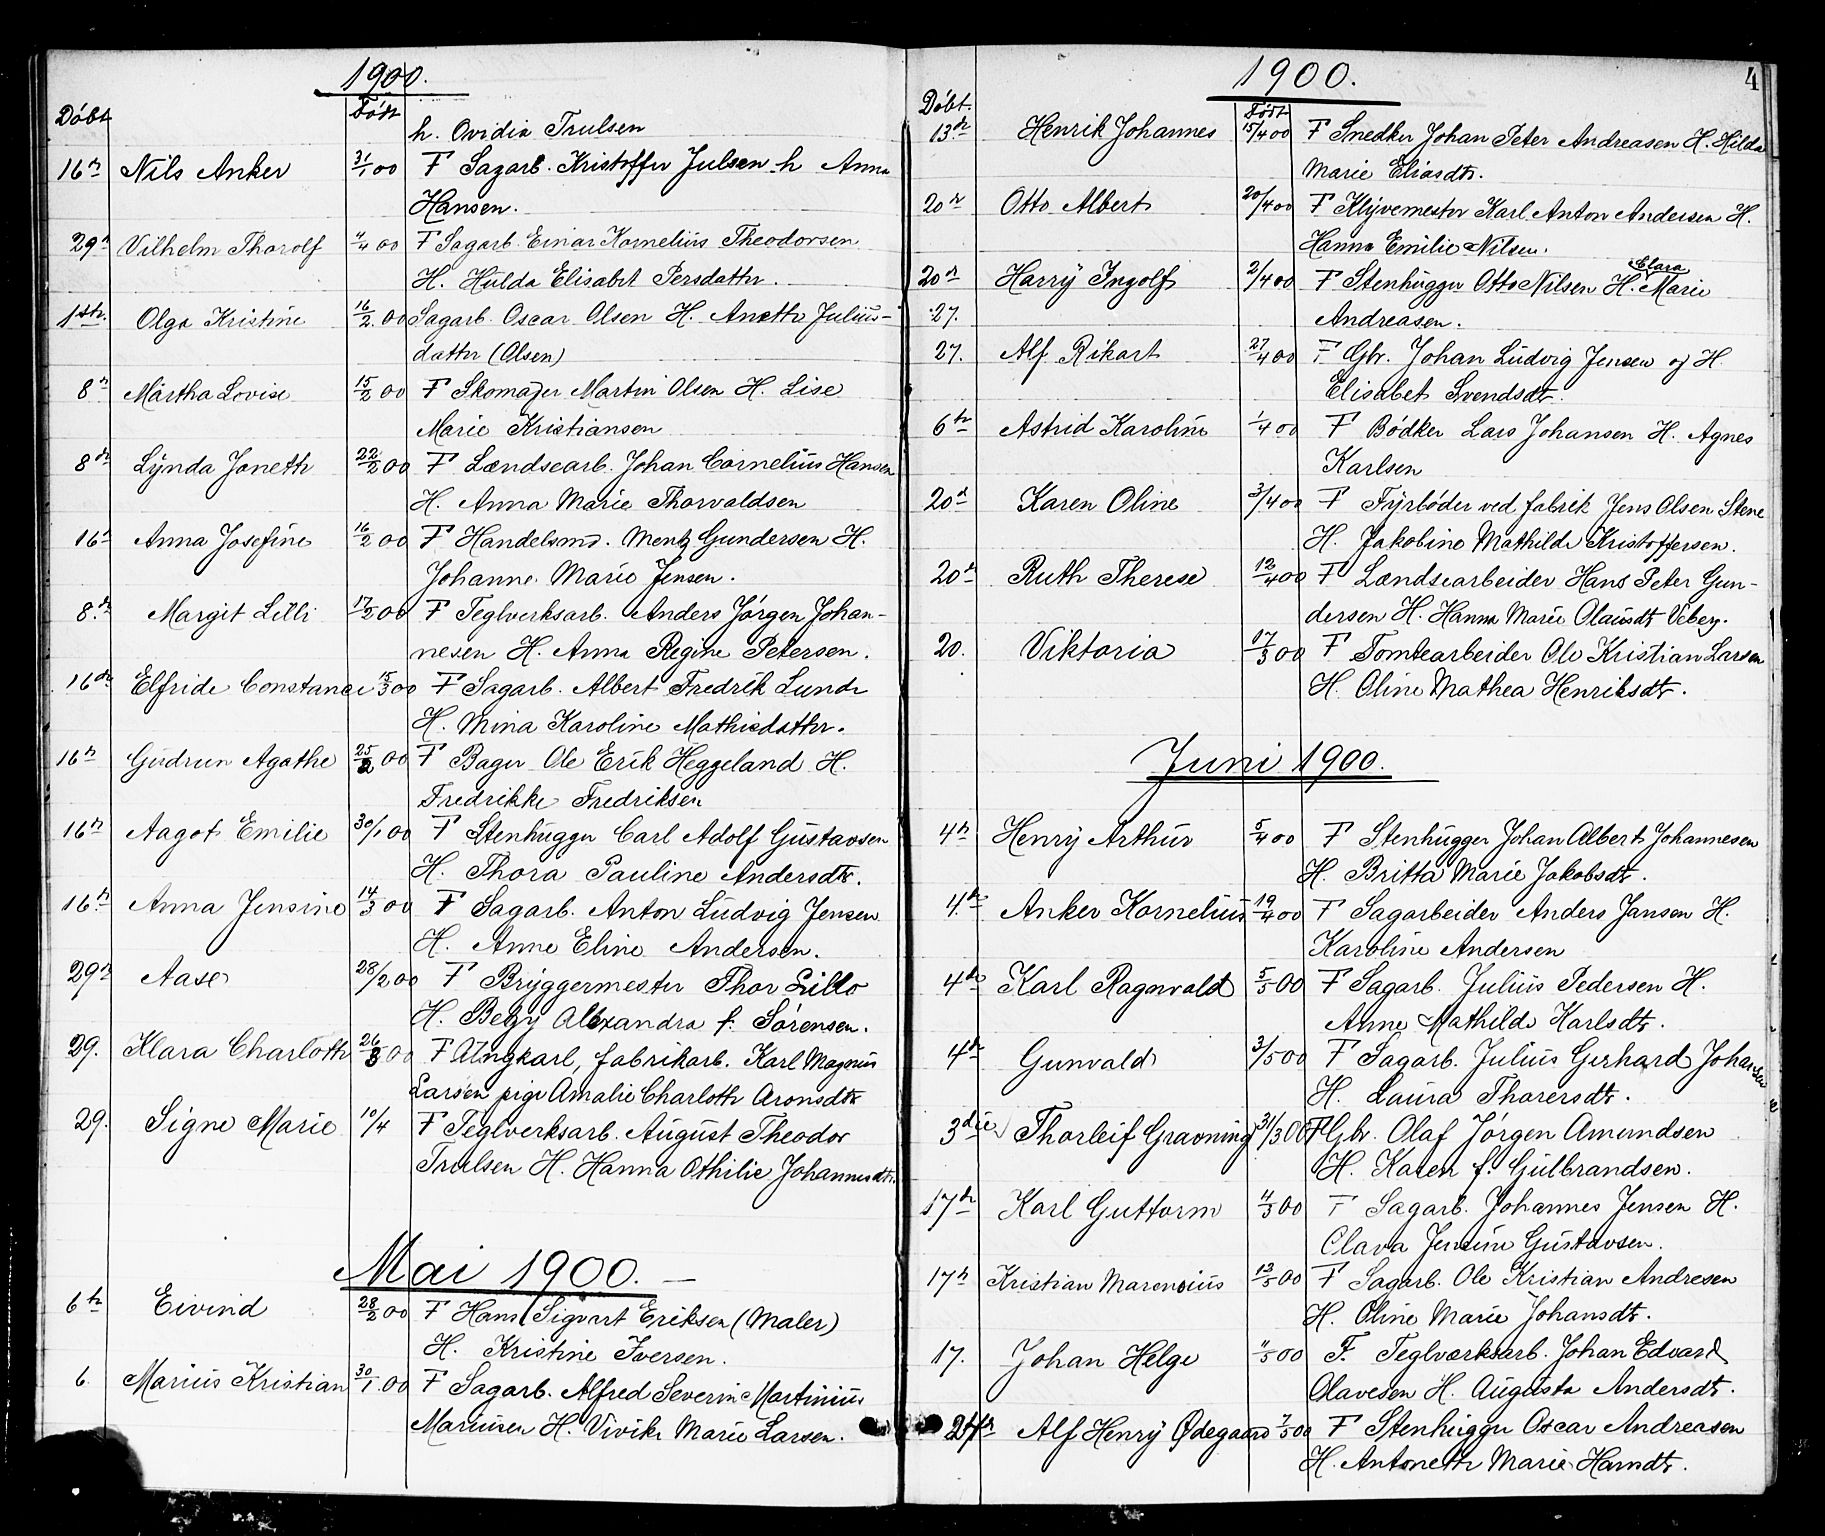 1900.
Döbt Född
h. Ovidia Trulsen
16n Nils Anker 31/1 00 F Sagarb. Kristoffer Julsen h Anna
Hansen.
29n Vilhelm Thorolf 4/4 00 F Sagarb. Einar Kornelius Theodorsen
H. Hulda Elisabet Persdatter.
1ste. Olga Kristine 16/2 00 Sagarb. Oscar Olsen H. Anette Julius-
datter (Olsen)
8n Märtha Lovise 15/2 00 F Skomager Martin Olsen H. Lise
Marie Kristiansen
8de Lynda Janeth 22/2 00 F Lændsearb. Johan Cornelius Hansen
H. Anna Marie Thorvaldsen
16n Anna Josefine 16/2 00 F Handelsmd. Mentz Gundersen H.
Johanne Marie Jensen.
8.de Margit Lilli 17/2 00 F Teglverksarb. Anders Jørgen Johan-
nesen H. Anna Regine Petersen.
16de Elfride Constance 15/3 00 F Sagarb. Albert Fredrik Lunde
H. Mina Karoline Mathisdatter.
16n Gudrun Agathe 25/2 00 F Bager Ole Erik Heggeland H.
Fredrikke Fredriksen
16n Aagot Emilie 30/1 00 F Stenhugger Carl Adolf Gustavsen
H. Thora Pauline Andersdtr.
16n Anna Jensine 14/3 00 F Sagarb. Anton Ludvig Jensen
H. Anne Eline Andersen.
29n Aase 28/2 00 F Bryggermester Thor Lillo
H. Betzy Alexandra f. Sørensen.
29. Klara Charloth 26/3 00 F Ungkarl, fabrikarb. Karl Magnus
Larsen pige Amalie Charlotte Aronsdtr
29. Signe Marie 10/4 F Teglverksarb. August Theodor
Trulsen H. Hanna Othilie Johannesdtr.
Mai 1900. —
6te Eivind 28/2 00 F Hans Sigvart Eriksen (Maler)
H. Kristine Iversen.
6. Marius Kristian 30/1 00 F Sagarb. Alfred Severin Martinius
Mariusen H. Vivike Marie Larsen.
1900. 4
Döbt. Född
13de Henrik Johannes 15/4 00 F Snedker Johan Peter Andreasen H. Hilda
Marie Eliasdtr.
20n Otto Albert 20/4 00 F Klyvemester Karl Anton Andersen H.
Hanna Emilie Nilsen.
20n Harry Ingolf 2/4 00 F Stenhugger Otto Nilsen H. Clara Marie
27. Andreasen.
27. Alf Rikart 27/4 00 F Gbr. Johan Ludvig Jensen og H.
Elisabet Svendsdtr.
6te Astrid Karoline 1/4 00 F Bødker Lars Johansen H. Agnes
Karlsen
20n Karen Oline 3/4 00 F Fyrbøder ved fabrik Jens Olsen Stene
H. Jakobine Mathilde Kristoffersen.
20n Ruth Therese 12/4 00 F Lændsearbeider Hans Peter Gun-
dersen H. Hanna Marie Olausdtr Viberg.
20. Viktoria 17/3 00 F Tomtearbeider Ole Kristian Larsen
H. Oline Mathea Henriksdtr.
Juni 1900.
4n Henry Arthur 5/4 00 F Stenhugger Johan Albert Johannesen
H. Britta Marie Jakobsdtr.
4.de Anker Kornelius 19/4 00 F Sagarbeider Anders Jansen H.
Karoline Andersen
4de Karl Ragnvald 5/5 00 F Sagarb. Julius Pedersen H.
Anne Mathilde Karlsdtr.
4de Gunvald 3/5 00 F Sagarb. Julius Gerhard Johansen
H. Laura Thorersdtr.
3die Thorleif Gravning 31/3 00 F Gbr. Olaf Jørgen Amundsen
H. Karen f. Gulbrandsen.
17de Karl Guttorm 4/3 00 F Sagarb. Johannes Jensen H.
Clara Jensine Gustavsen.
17n Kristian Marensius 13/5 00 F Sagarb. Ole Kristian Andresen
H. Oline Marie Johansdtr.
17. Johan Helge 4/5 00 F. Teglværksarb. Johan Edvard
Olavesen H. Augusta Andersdtr.
24de Alf Henry Ødegaard 7/5 00 F Stenhugger Oscar Andreasen
H. Antonette Marie Hansdtr.